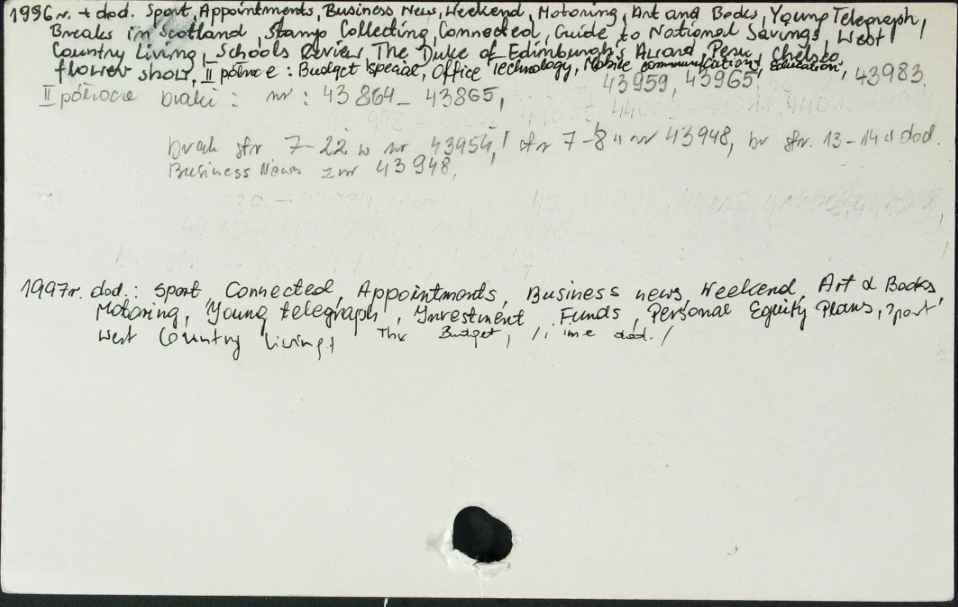 1996r. + dod. Sport, Appointments, Business News, Weekend, Motoring, Art and Books, Young Telegraph,
Breaks in Scotland, Stamp Collecting, Connected, Guide to National Savings, West
Country Living, Schools Review, The Duke of Edimburgh's Award, Peru, Chelsea
flower show, II półrocze: Budget special, Office Technology, Mobile communication, Education,
II półrocze braki: nr: 43864-43865, 43959, 43965, 43983.
brak str 7-22 w nr 43954, str 7-8 w nr 43948, br str. 13-14 w dod.
Business News z nr 43948,
1997r. dod.: Sport, Connected, Appointments, Business news, Weekend, Art & Books,
Motoring, Young telegraph, Investment Funds, Personal Equity Plans, Sport
West Country Living, The Budget, /i inne dod./